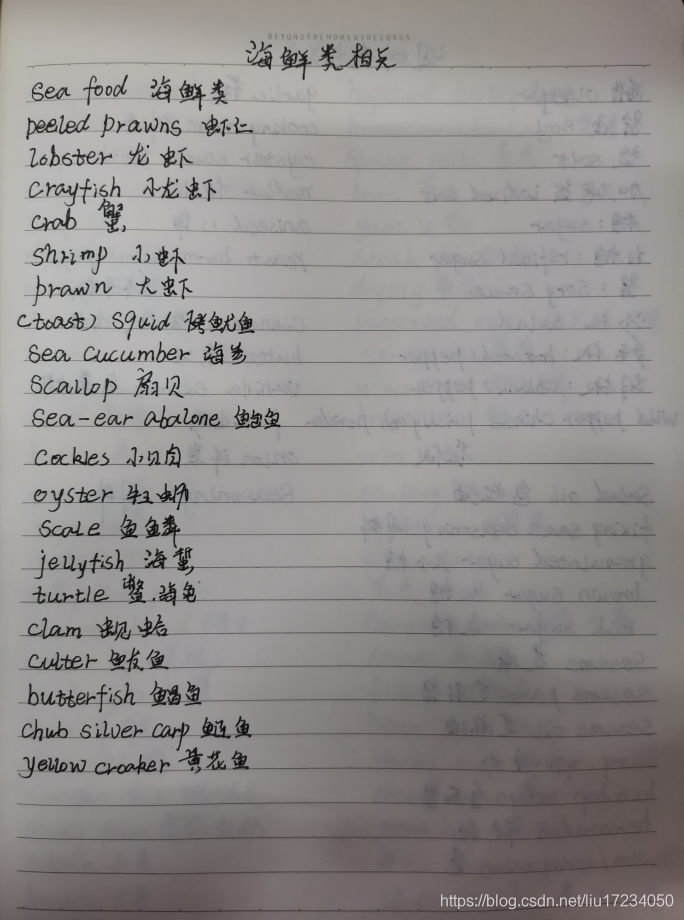 BEYONDTHEMOMENTRECORDS
海鲜类相关
sea food 海鲜类
peeled prawns 虾仁
lobster 龙虾
crayfish 小龙虾
crab 蟹
shrimp 小虾
prawn 大虾
(toast) squid 烤鱿鱼
sea cucumber 海参
scallop 扇贝
sea-ear abalone 鲍鱼
cockles 小贝肉
oyster 牡蛎
scale 鱼鳞
jellyfish 海蜇
turtle 鳖.海龟
clam 蚬蛤
culter 鲅鱼
butterfish 鲳鱼
chub silver carp 鲢鱼
yellow croaker 黄花鱼
https://blog.csdn.net/liu17234050